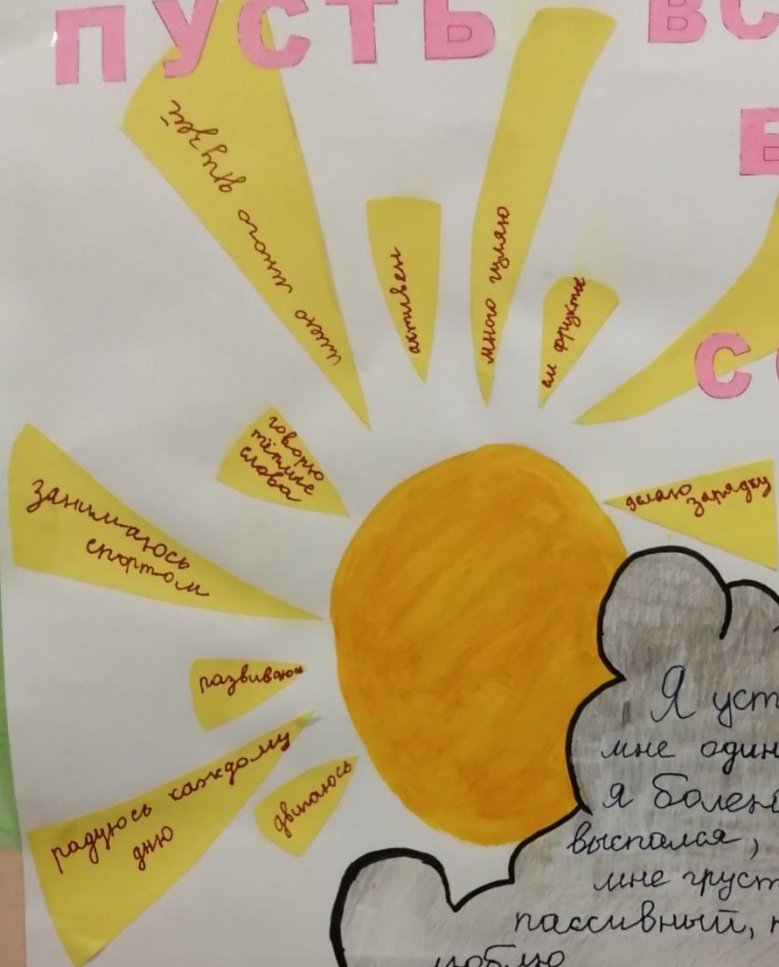 ПУСТЬ ВС
Е
С
имею много друзей
активен
много гуляю
ем фрукты
говорю
тёплые
слова
делаю зарядку
занимаюсь
спортом
развиваюсь
радуюсь каждому
дню
двигаюсь
Я уст
мне один
я болен
выспался,
мне груст
пассивный,
люблю